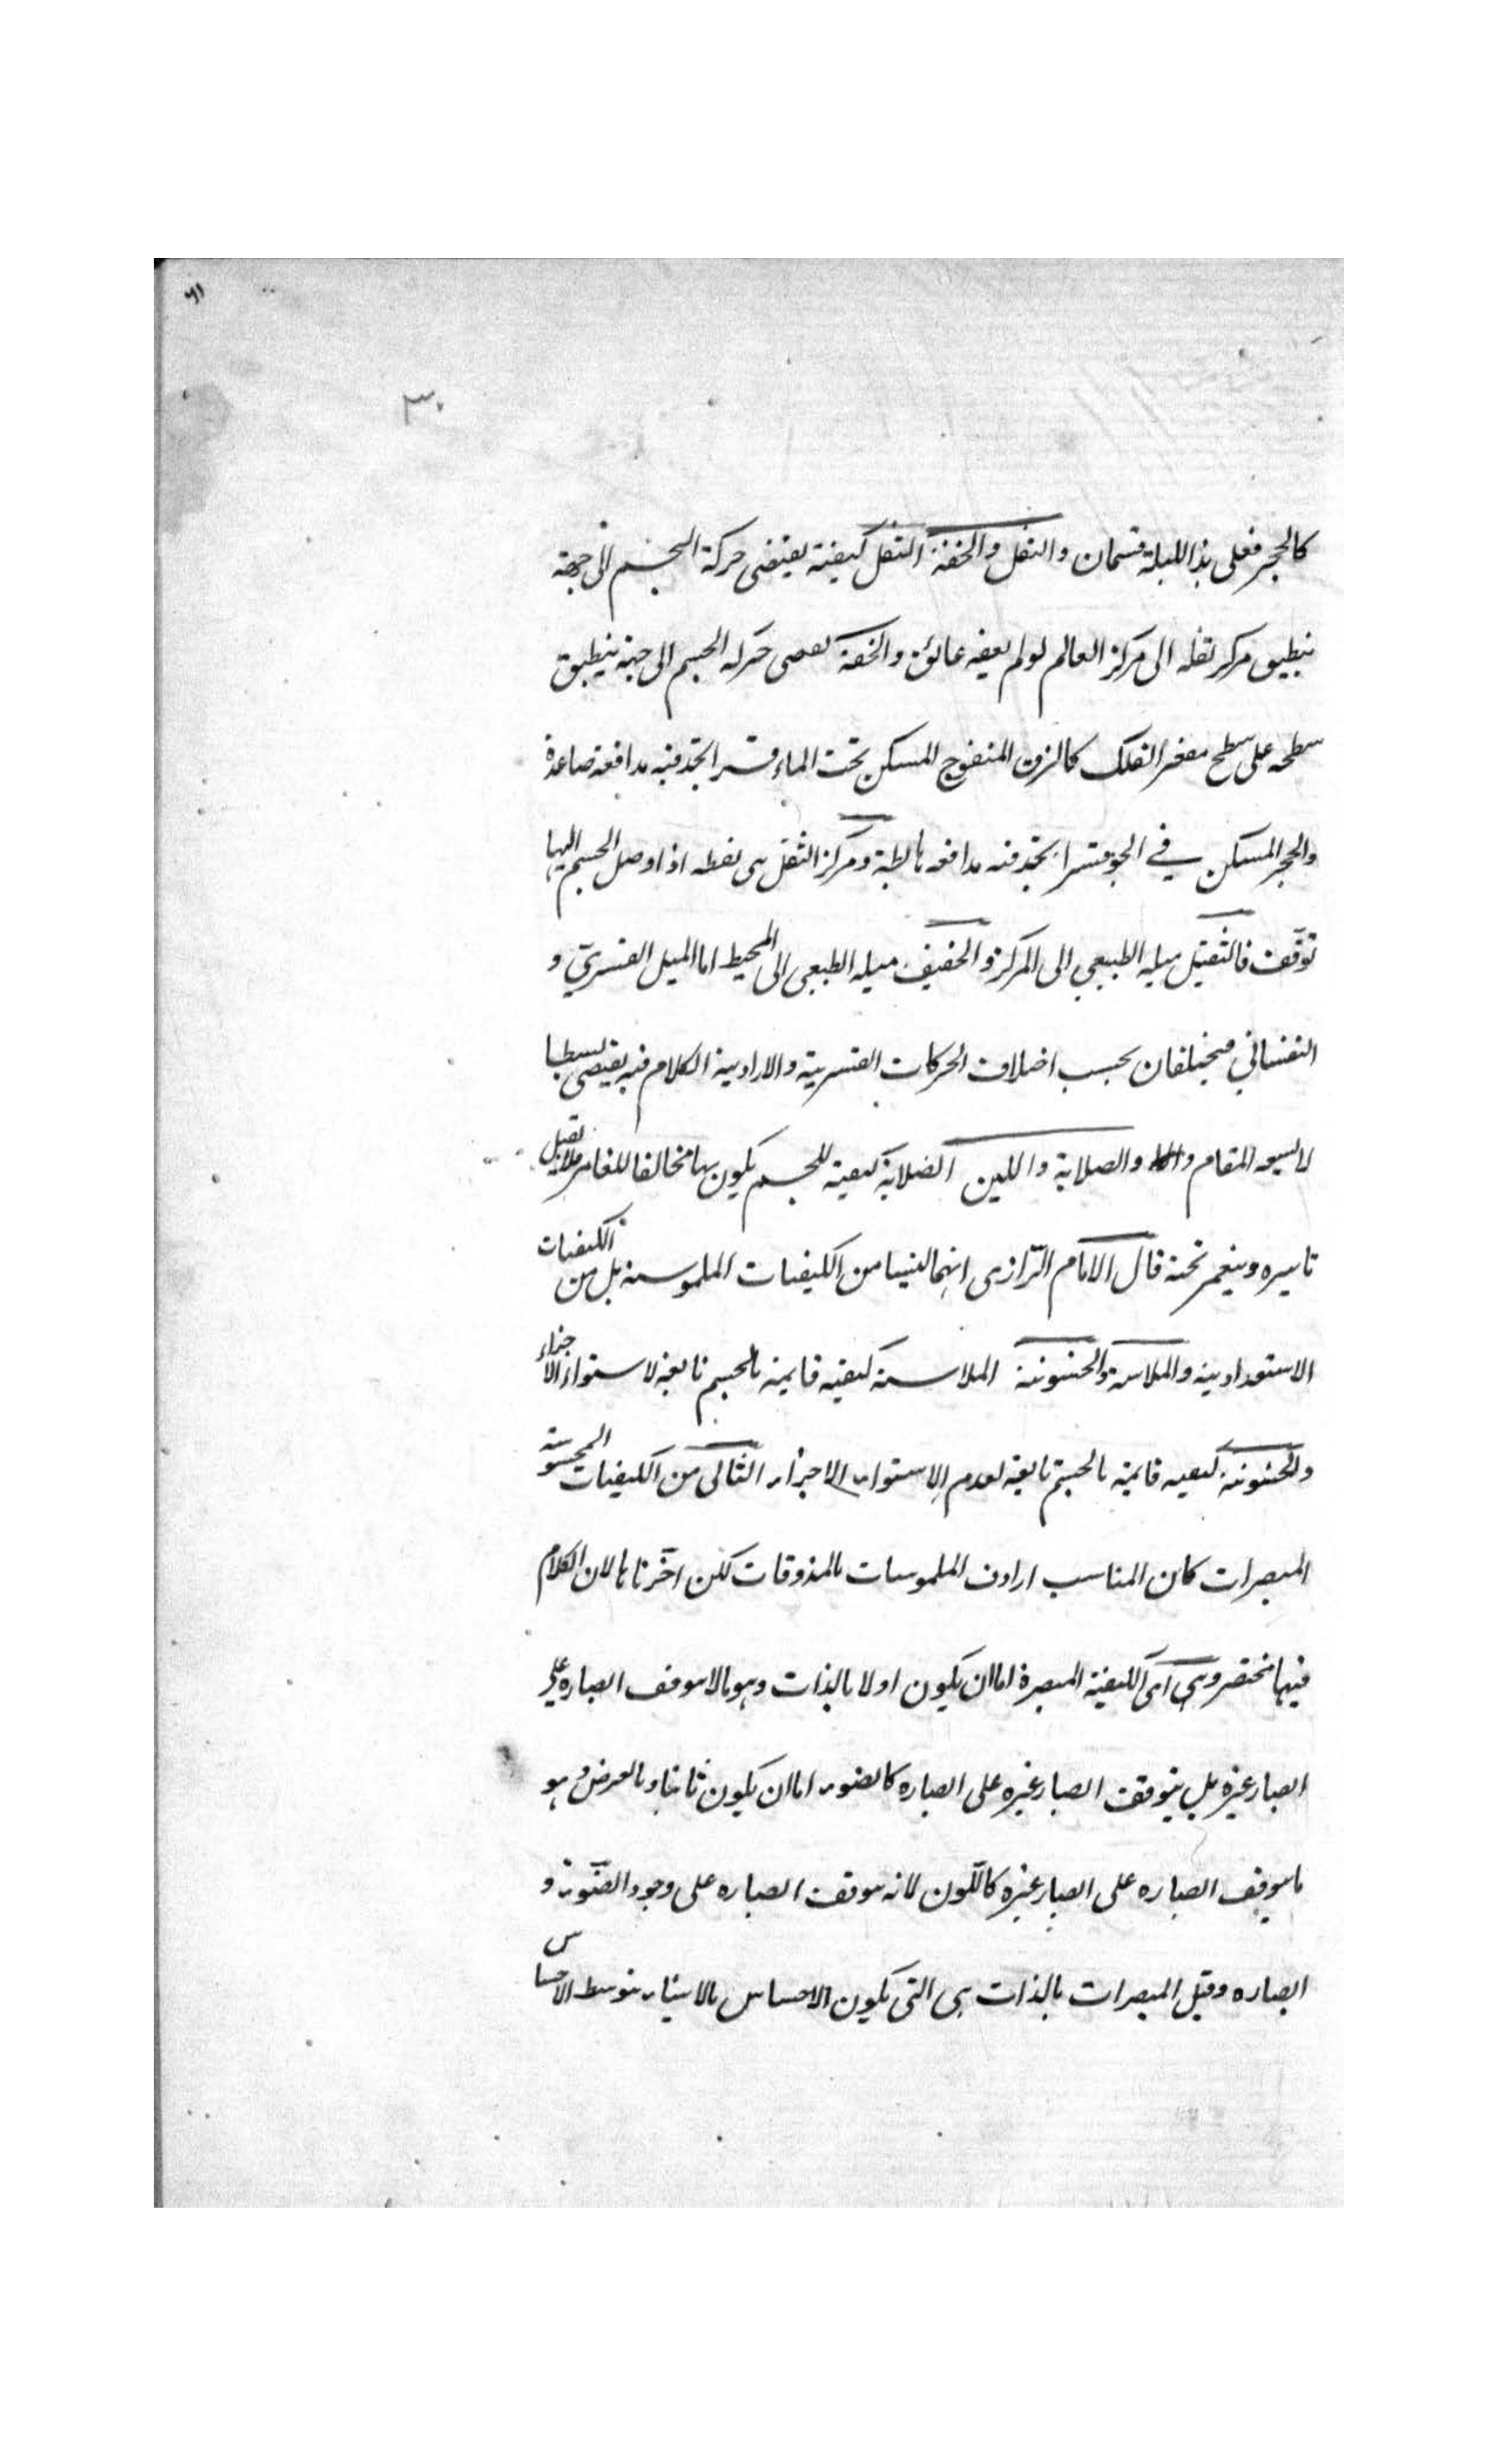 ٣٠
كالحجر فعلى هذا للبلة قسمان والثقل والخفة الثقل كيفية يقتضى حركة الجسم الى جهة
ينطبق مركز ثقله الى مركز العالم لو لم يعقه عائق والخفة يقتضى حركة الجسم الى جهة ينطبق
سطحه على سطح مقعر الفلك كالزق المنفوخ المسكن تحت الماء قسرا تجد فيه مدافعة صاعدة
والحجر المسكن في الجو قسرا تجد فيه مدافعة هابطة ومركز الثقل هى نقطة اذا وصل الجسم اليها
توقّف فالثقيل ميله الطبيعي الى المركز والخفيف ميله الطبعى الى المحيط اما الميل القسري و
النفساني فيختلفان بحسب اختلاف الحركات القسرية والارادية الكلام فيه يقتضى بسطا
لا يسعه المقام والصلابة واللين الصلابة كيفية للجسم يكون بها مخالفا للغامز فلا يقبل
تاثيره وينغمز تحته قال الامام الرّازى انهما ليسا من الكيفيات الملموسة بل من الكيفيات
الاستعدادية والملاسة والخشونة الملاسة كيفية قايمة بالجسم تابعة لاستواء الاجزاء
والخشونة كيفية قايمة بالجسم تابعة لعدم الاستواء الاجزاء الثانى من الكيفيات المحسوسة
المبصرات كان المناسب ارداف الملموسات بالمذوقات لكن اخّرناها لان الكلام
فيها مختصر وهى اى الكيفية المبصرة اما ان يكون اولا بالذات وهو ما لا يتوقف ابصاره على
ابصار غيره بل يتوقف ابصار غيره على ابصاره كالضوء اما ان يكون ثانيا وبالعرض وهو
ما يتوقف ابصاره على ابصار غيره كاللّون لانه يتوقف ابصاره على وجود الضّوء و
ابصاره وقيل المبصرات بالذات هى التى يكون الاحساس بالاشياء بتوسط الاحساس